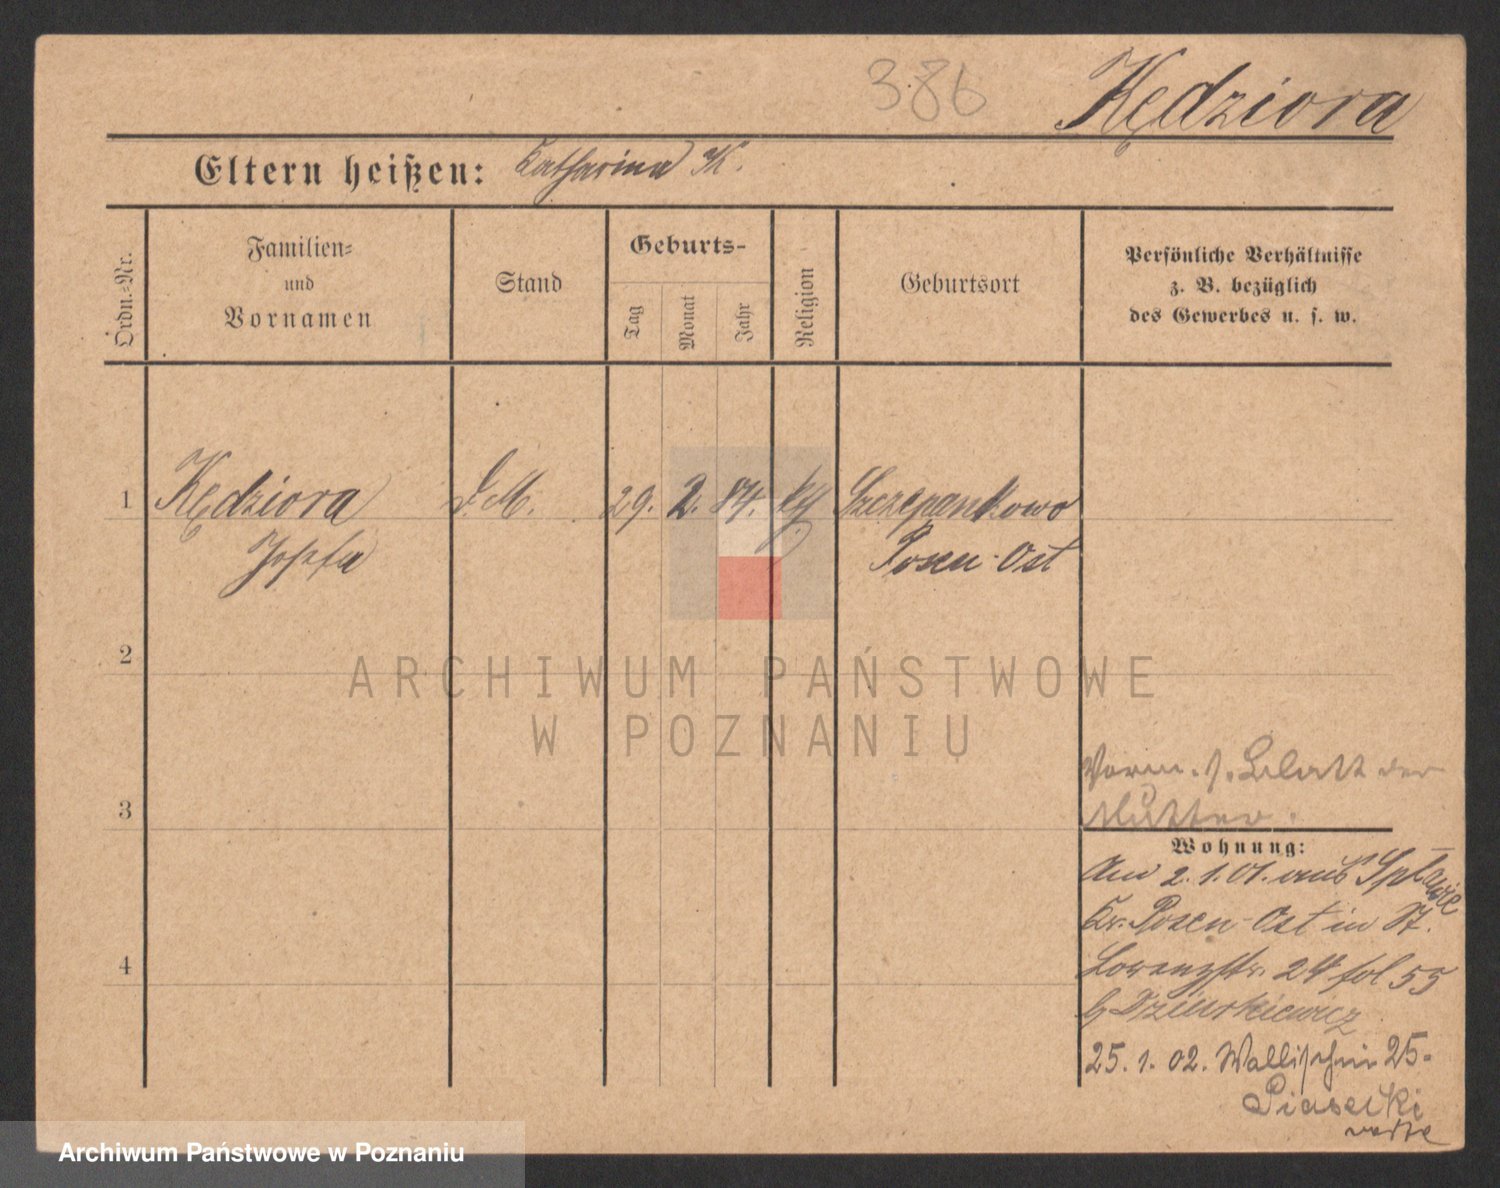 386
Kędziora
Eltern heißen: Katharina K.
Ordn.-Nr.
Familien-
und
Vornamen
Stand
Geburts-
Tag
Monat
Jahr
Religion
Geburtsort
Persönliche Verhältnisse
z. B. bezüglich
des Gewerbes u. s. w.
1 Kędziora D. M. 29. 2. 84. kth Szczepankowo
Josefa Posen-Ost
2
ARCHIWUM PAŃSTWOWE
W POZNANIU
Vorm. s. Blatt der
Mutter.
3
Wohnung:
Am 2. 1. 01. aus Spławie
Kr. Posen-Ost in St.
4
Lorenzstr. 24 fol 55
b
25. 1. 02. Wallischei 25.
Piasecki
Archiwum Państwowe w Poznaniu